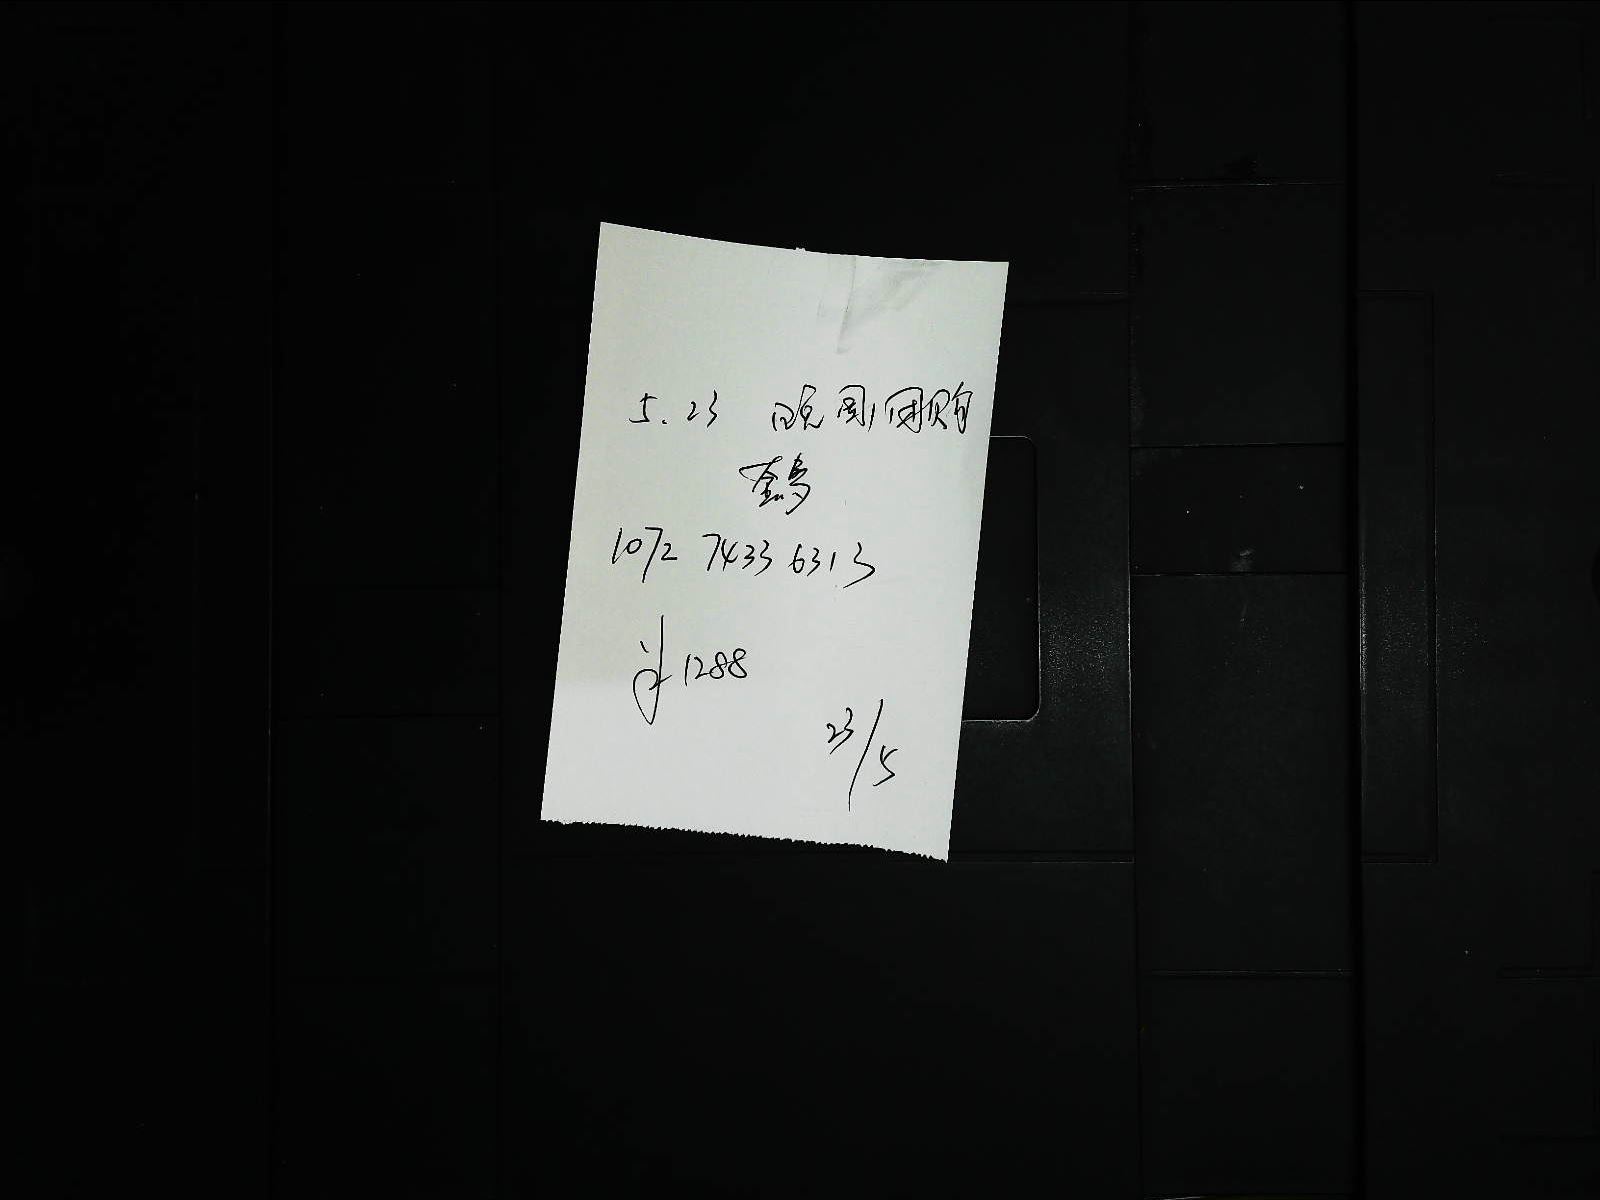 5.23 晚 团购
1072 7433 6313
1288
23/5